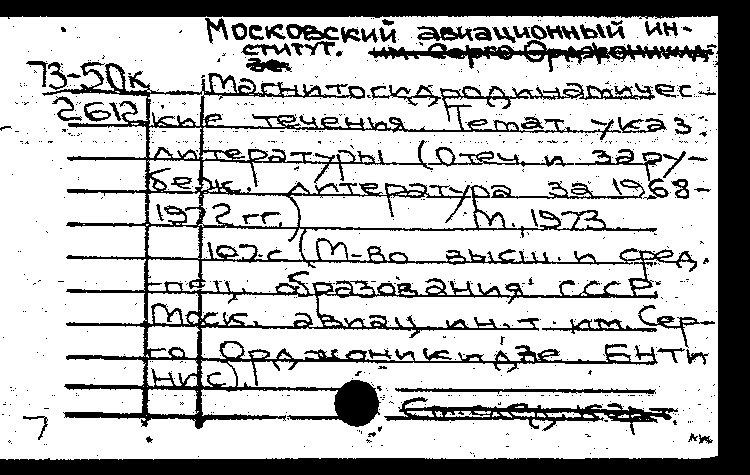 Московский авиационный ин-
ститут. им. Серго Орджоникид-
зе.
73-50к Магнитогидродинамичес-
2612 кие течения. Темат. указ.
литературы (Отеч. и зару-
беж. литература за 1968-
1972 гг.) М., 1973
107 с (М-во высш. и сред.
спец. образования СССР.
Моск. авиац. ин-т им. Сер-
го Орджоникидзе. БНТИ
НИС).